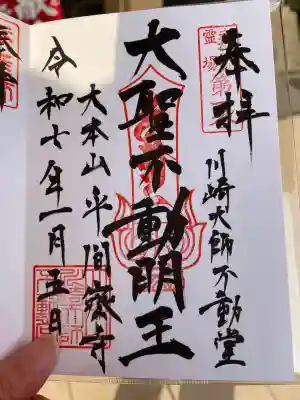 奉拝
川崎大師不動堂
大聖不動明王
大本山平間寺
令和七年一月五日
霊場